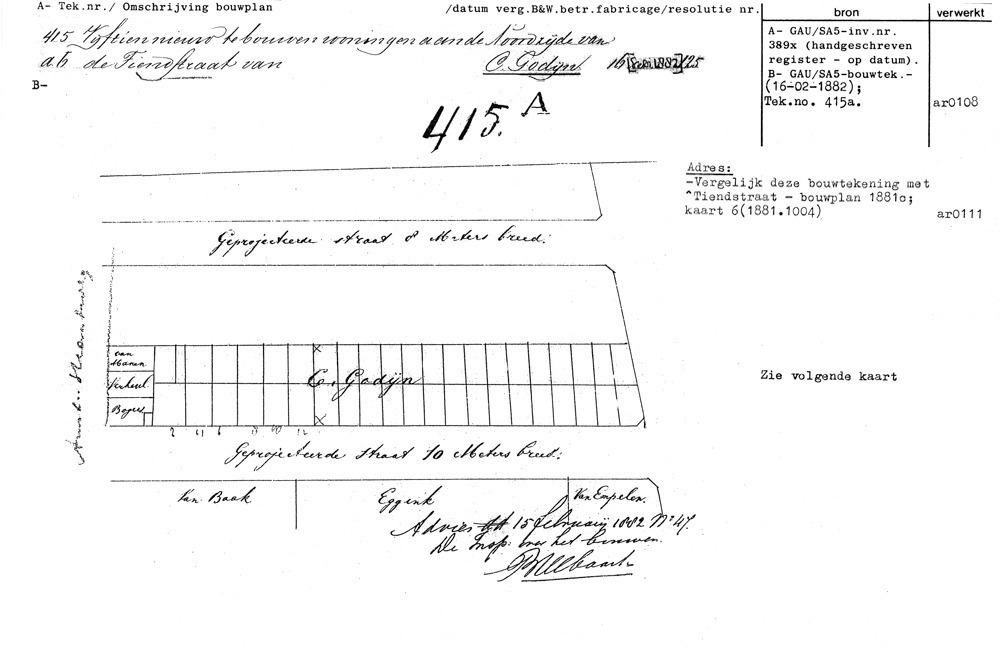 A- Tek.nr./ Omschrijving bouwplan /datum verg.B&W.betr.fabricage/resolutie nr.
bron
verwerkt
415 Vijftien nieuw te bouwen woningen aan de Noordzijde van
a.b de Tiendstraat van C. Godijn 16 [Febr. 1882] /25
B-
A- GAU/SA5-inv.nr.
389x (handgeschreven
register - op datum).
B- GAU/SA5-bouwtek.-
(16-02-1882);
Tek.no. 415a.
ar0108
415. A
Adres:
-Vergelijk deze bouwtekening met
^Tiendstraat - bouwplan 1881c;
kaart 6(1881.1004)
ar0111
Geprojecteerde straat 8 Meters breed.
van
Manen
Verheul
C. Godijn
Zie volgende kaart
Bogers
2 4 6 8 10 12
Geprojecteerde straat 10 Meters breed.
Van Baak
Eggink
Van Empelen
Advies 15 februarij 1882 No 47.
De Insp: over het bouwen.